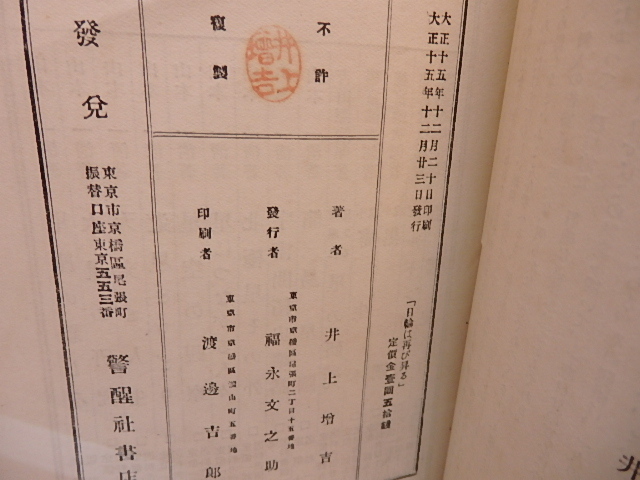 大正十五年十二月二十日印刷
大正十五年十二月廿三日發行
「日輪は再び昇る」
定價金壹圓五拾錢
不許
複製
井上
增吉
著者 井上增吉
東京市京橋區尾張町二丁目十五番地
發行者 福永文之助
印刷者 渡邊吉郎
發兌
東京市京橋區尾張町
振替口座東京五五三番
警醒社書店